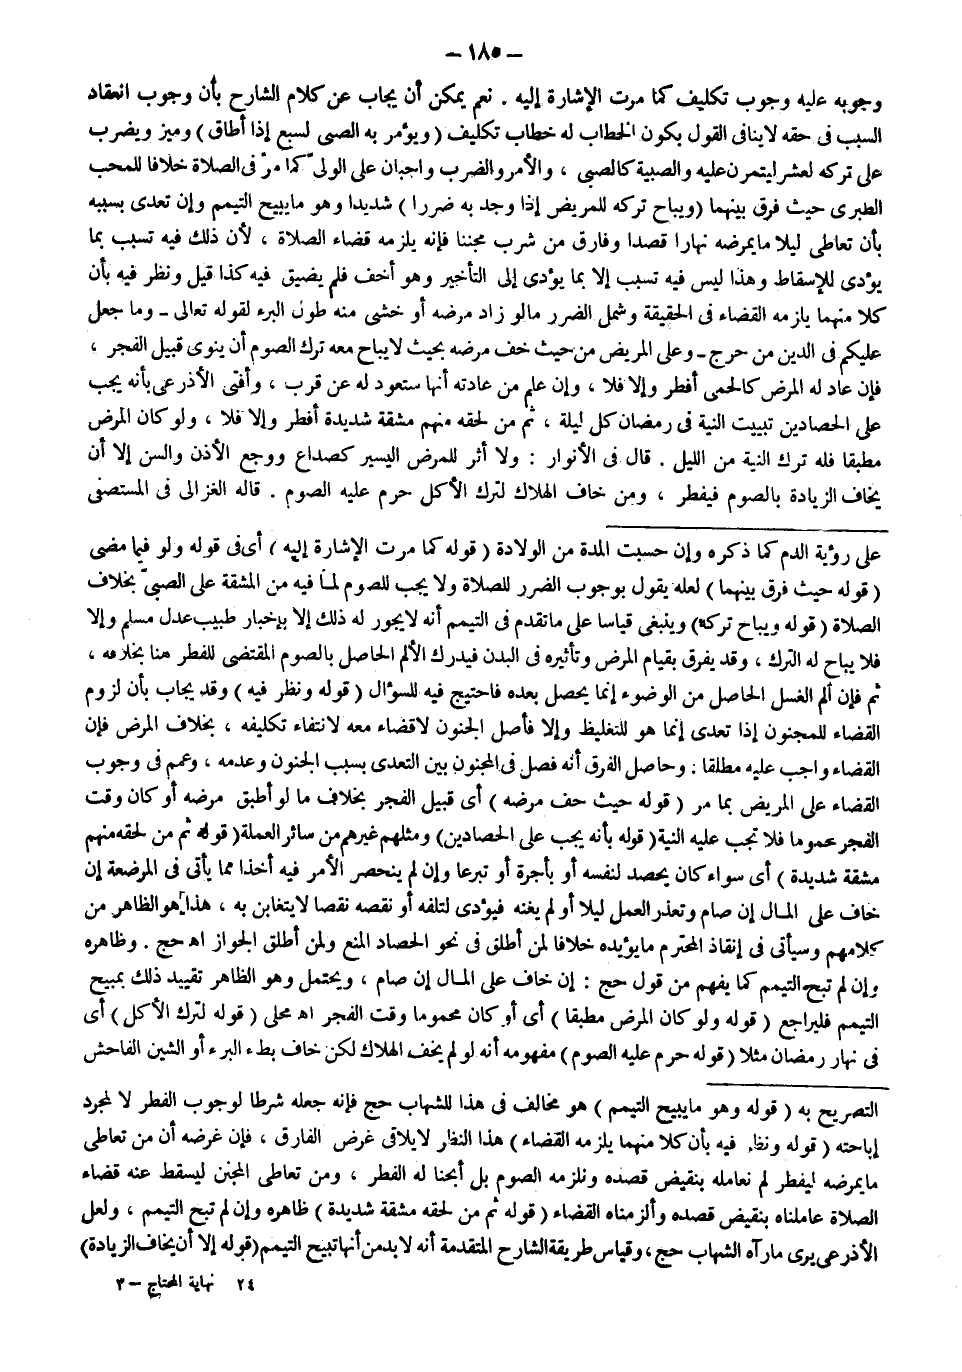 – ١٨٥ –
وجوبه عليه وجوب تكليف كما مرت الإشارة إليه . نعم يمكن أن يجاب عن كلام الشارح بأن وجوب انعقاد
السبب فى حقه لاينافى القول بكون الخطاب له خطاب تكليف ( ويؤمر به الصبى لسبع إذا أطاق ) وميز ويضرب
على تركه لعشر ليتمرن عليه والصبية كالصبى ، والأمر والضرب واجبان على الولىّ كما مرّ فى الصلاة خلافا للمحب
الطبرى حيث فرق بينهما ( ويباح تركه للمريض إذا وجد به ضررا ) شديدا وهو مايبيح التيمم وإن تعدى بسببه
بأن تعاطى ليلا مايمرضه نهارا قصدا وفارق من شرب مجننا فإنه يلزمه قضاء الصلاة ، لأن ذلك فيه تسبب بما
يؤدى للإسقاط وهذا ليس فيه تسبب إلا بما يؤدى إلى التأخير وهو أخف فلم يضيق فيه كذا قيل ونظر فيه بأن
كلا منهما يلزمه القضاء فى الحقيقة وشمل الضرر مالو زاد مرضه أو خشى منه طول البرء لقوله تعالى ـ وما جعل
عليكم فى الدين من حرج ـ وعلى المريض من حيث خف مرضه بحيث لايباح معه ترك الصوم أن ينوى قبيل الفجر ،
فإن عاد له المرض كالحمى أفطر وإلا فلا ، وإن علم من عادته أنها ستعود له عن قرب ، وأفتى الأذرعى بأنه يجب
على الحصادين تبييت النية فى رمضان كل ليلة ، ثم من لحقه منهم مشقة شديدة أفطر وإلا فلا ، ولو كان المرض
مطبقا فله ترك النية من الليل . قال فى الأنوار : ولا أثر للمرض اليسير كصداع ووجع الأذن والسن إلا أن
يخاف الزيادة بالصوم فيفطر ، ومن خاف الهلاك لترك الأكل حرم عليه الصوم . قاله الغزالى فى المستصفى
على رؤية الدم كما ذكره وإن حسبت المدة من الولادة ( قوله كما مرت الإشارة إليه ) أى فى قوله ولو فيما مضى
( قوله حيث فرق بينهما ) لعله يقول بوجوب الضرر للصلاة ولا يجب للصوم لما فيه من المشقة على الصبىّ بخلاف
الصلاة ( قوله ويباح تركه ) وينبغى قياسا على ماتقدم فى التيمم أنه لايجوز له ذلك إلا بإخبار طبيب عدل مسلم وإلا
فلا يباح له الترك ، وقد يفرق بقيام المرض وتأثيره فى البدن فيدرك الألم الحاصل بالصوم المقتضى للفطر هنا بخلافه ،
ثم فإن ألم الغسل الحاصل من الوضوء إنما يحصل بعده فاحتيج فيه للسؤال ( قوله ونظر فيه ) وقد يجاب بأن لزوم
القضاء للمجنون إذا تعدى إنما هو للتغليظ وإلا فأصل الجنون لاقضاء معه لانتفاء تكليفه ، بخلاف المرض فإن
القضاء واجب عليه مطلقا : وحاصل الفرق أنه فصل فى المجنون بين التعدى بسبب الجنون وعدمه ، وعمم فى وجوب
القضاء على المريض بما مر ( قوله حيث خف مرضه ) أى قبيل الفجر بخلاف ما لو أطبق مرضه أو كان وقت
الفجر محموما فلا تجب عليه النية ( قوله بأنه يجب على الحصادين ) ومثلهم غيرهم من سائر العملة ( قوله ثم من لحقه منهم
مشقة شديدة ) أى سواء كان يحصد لنفسه أو بأجرة أو تبرعا وإن لم ينحصر الأمر فيه أخذا مما يأتى فى المرضعة إن
خاف على المال إن صام وتعذر العمل ليلا أو لم يغنه فيؤدى لتلفه أو نقصه نقصا لايتغابن به ، هذا هو الظاهر من
كلامهم وسيأتى فى إنقاذ المحترم مايؤيده خلافا لمن أطلق فى نحو الحصاد المنع ولمن أطلق الجواز اه حج . وظاهره
وإن لم تبح التيمم كما يفهم من قول حج : إن خاف على المال إن صام ، ويحتمل وهو الظاهر تقييد ذلك بمبيح
التيمم فليراجع ( قوله ولو كان المرض مطبقا ) أى أو كان محموما وقت الفجر اه محلى ( قوله لترك الأكل ) أى
فى نهار رمضان مثلا ( قوله حرم عليه الصوم ) مفهومه أنه لو لم يخف الهلاك لكن خاف بطء البرء أو الشين الفاحش
التصريح به ( قوله وهو مايبيح التيمم ) هو مخالف فى هذا للشهاب حج فإنه جعله شرطا لوجوب الفطر لا لمجرد
إباحته ( قوله ونظر فيه بأن كلا منهما يلزمه القضاء ) هذا النظار لايلاقى غرض الفارق ، فإن غرضه أن من تعاطى
مايمرضه ليفطر لم نعامله بنقيض قصده ونلزمه الصوم بل أبحنا له الفطر ، ومن تعاطى المجنن ليسقط عنه قضاء
الصلاة عاملناه بنقيض قصده وألزمناه القضاء ( قوله ثم من لحقه مشقة شديدة ) ظاهره وإن لم تبح التيمم ، ولعل
الأذرعى يرى مارآه الشهاب حج ، وقياس طريقة الشارح المتقدمة أنه لا بد من أنها تبيح التيمم ( قوله إلا أن يخاف الزيادة )
٢٤ نهاية المحتاج – ٣